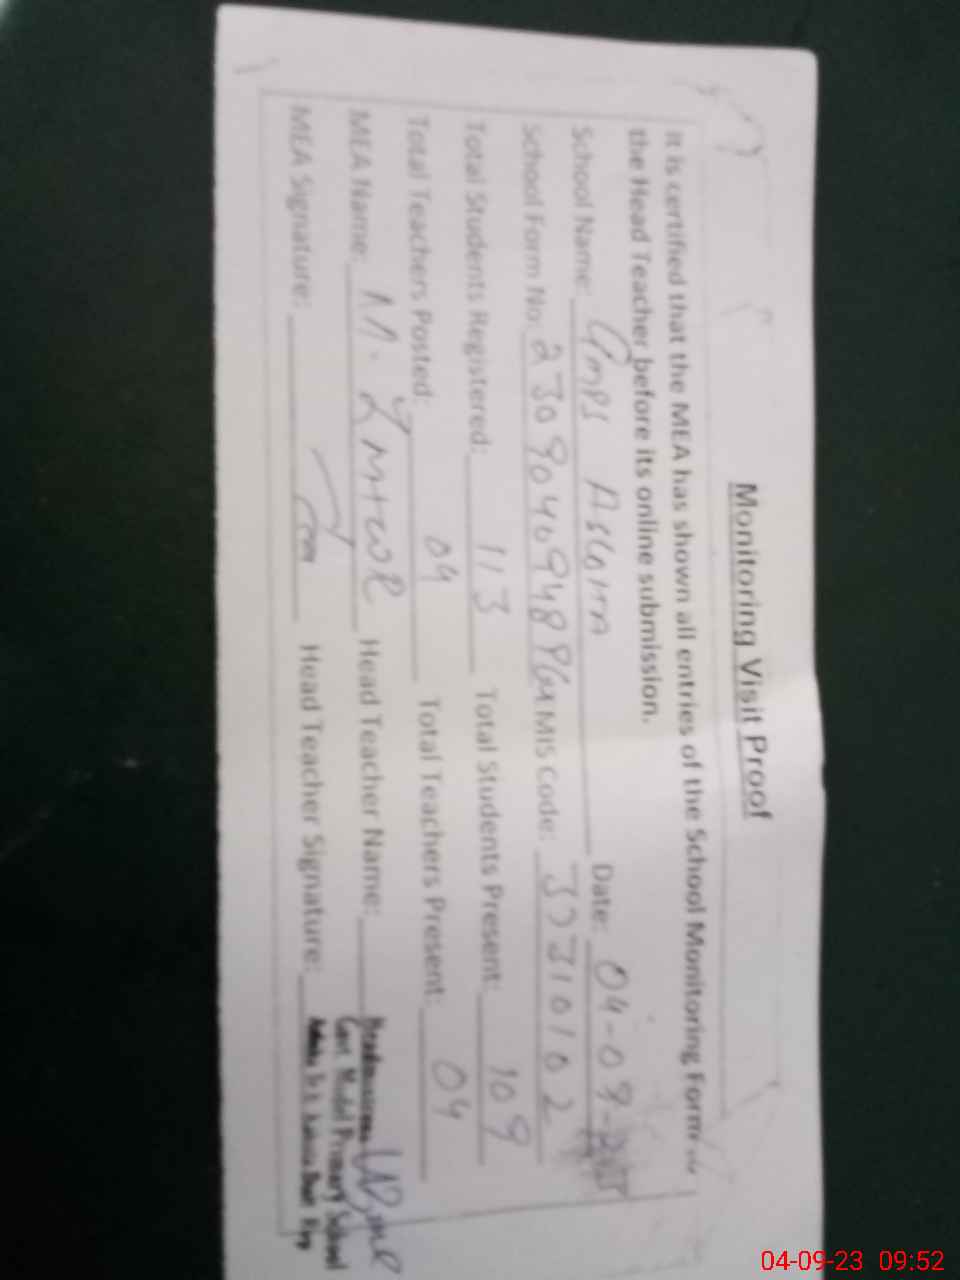 Monitoring Visit Proof
It is certified that the MEA has shown all entries of the School Monitoring Form
the Head Teacher before its online submission.
School Name: Gmps Date: 04-09-
School Form No: EMIS Code: 37310102
Total Students Registered: 113 Total Students Present: 109
Total Teachers Posted: 04 Total Teachers Present: 04
MEA Name: M. Head Teacher Name:
MEA Signature: Head Teacher Signature:
Headmistress
Govt. Model Primary School
04-09-23 09:52